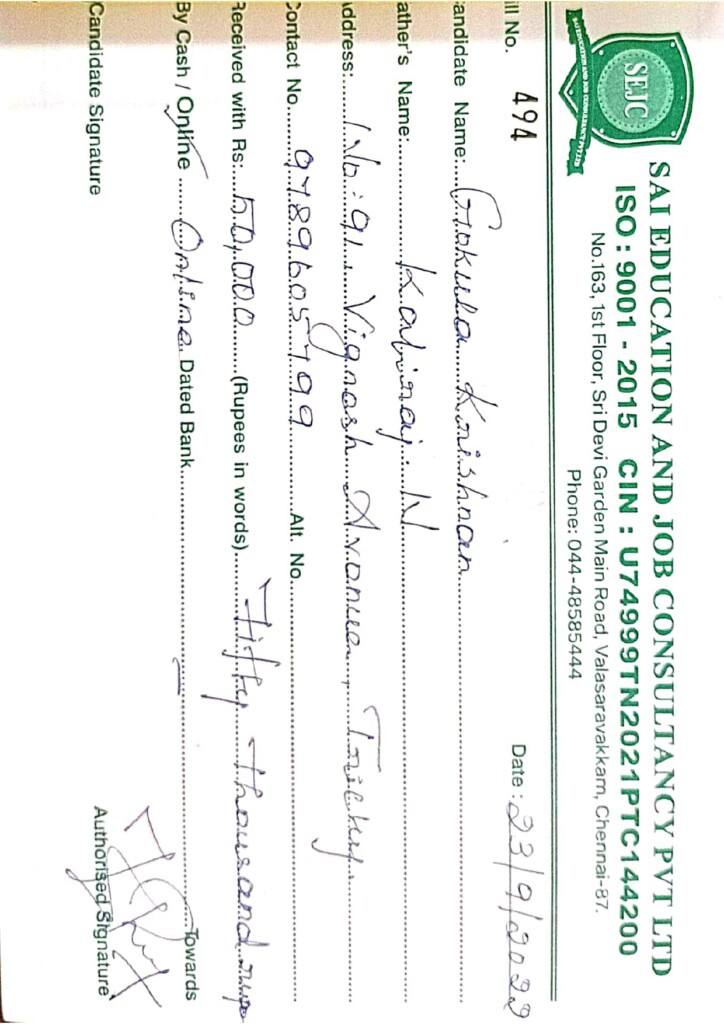 SEJC
SAI EDUCATION AND JOB CONSULTANCY PVT LTD
SAI EDUCATION AND JOB CONSULTANCY PVT LTD
ISO : 9001 - 2015 CIN : U74999TN2021PTC144200
No.163, 1st Floor, Sri Devi Garden Main Road, Valasaravakkam, Chennai-87.
Phone: 044-48585444
ill No. 494 Date : 23/9/2022
andidate Name: Gokula Krishnan
ather's Name: Kaliraj. N
ddress: No: 91, Vignesh Avenue, Trichy.
Contact No. 9789605799 Alt. No.
Received with Rs: 50,000 (Rupees in words) Fifty thousand
By Cash / Online Online Dated Bank — Towards
Candidate Signature Authorised Signature